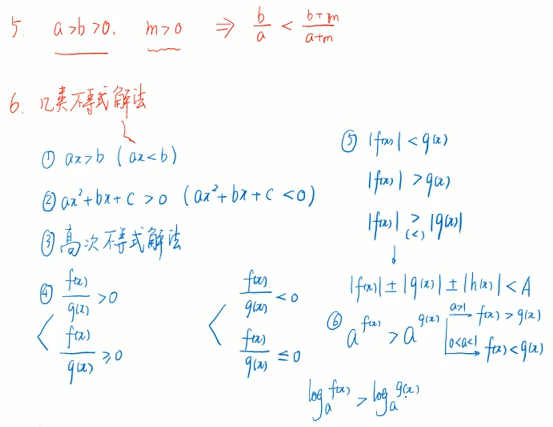 5 a>b>0, m>0 ⇒ b/a < (b+m)/(a+m)
6. 几类不等式解法
① ax>b (ax<b)
② ax²+bx+c>0 (ax²+bx+c<0)
③ 高次不等式解法
④ f(x)/g(x) > 0 f(x)/g(x) < 0
f(x)/g(x) ≥ 0 f(x)/g(x) ≤ 0
⑤ |f(x)| < g(x)
|f(x)| > g(x)
|f(x)| > (<) |g(x)|
|f(x)| ± |g(x)| ± |h(x)| < A
⑥ a^f(x) > a^g(x) a>1 → f(x) > g(x)
0<a<1 → f(x) < g(x)
log_a^f(x) > log_a^g(x)